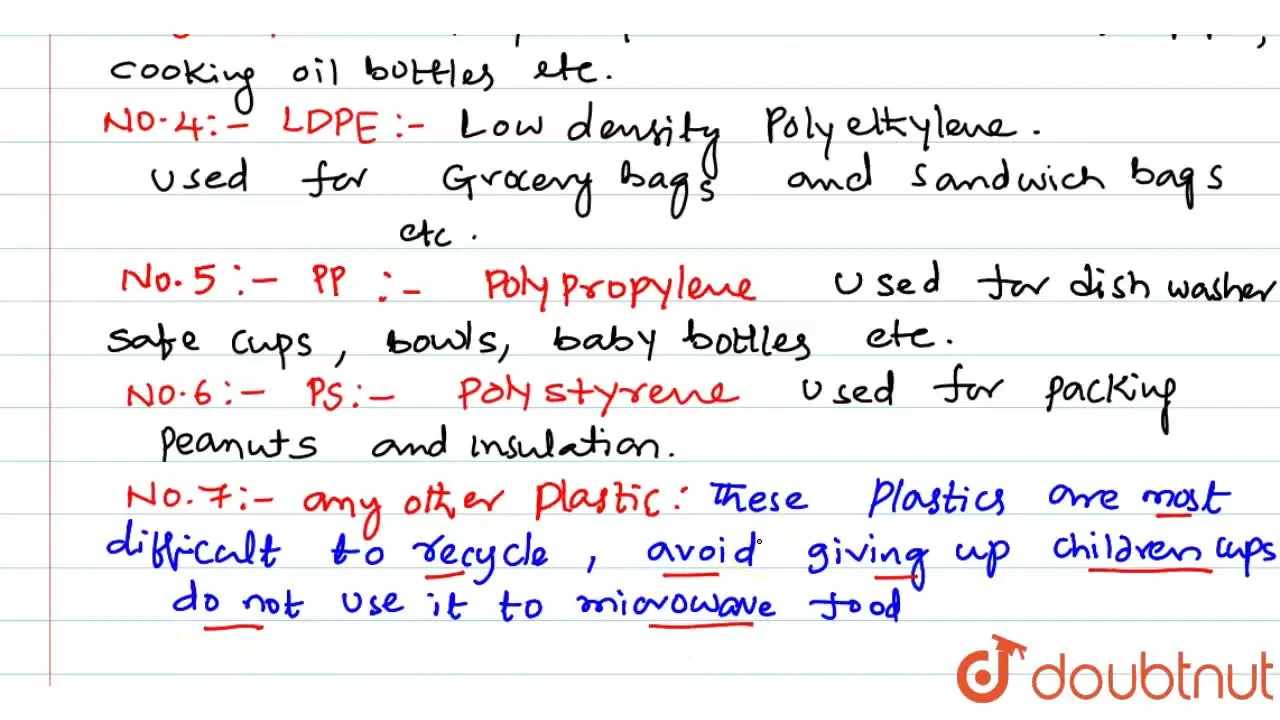 cooking oil bottles etc.
No.4:- LDPE:- Low density Polyethylene.
used for Grocery bags and sandwich bags
etc.
No.5:- PP:- Polypropylene used for dish washer
safe cups, bowls, baby bottles etc.
No.6:- PS:- Polystyrene used for packing
peanuts and insulation.
No.7:- any other Plastic: These Plastics are most
difficult to recycle, avoid giving up children cups
do not use it to microwave food
doubtnut